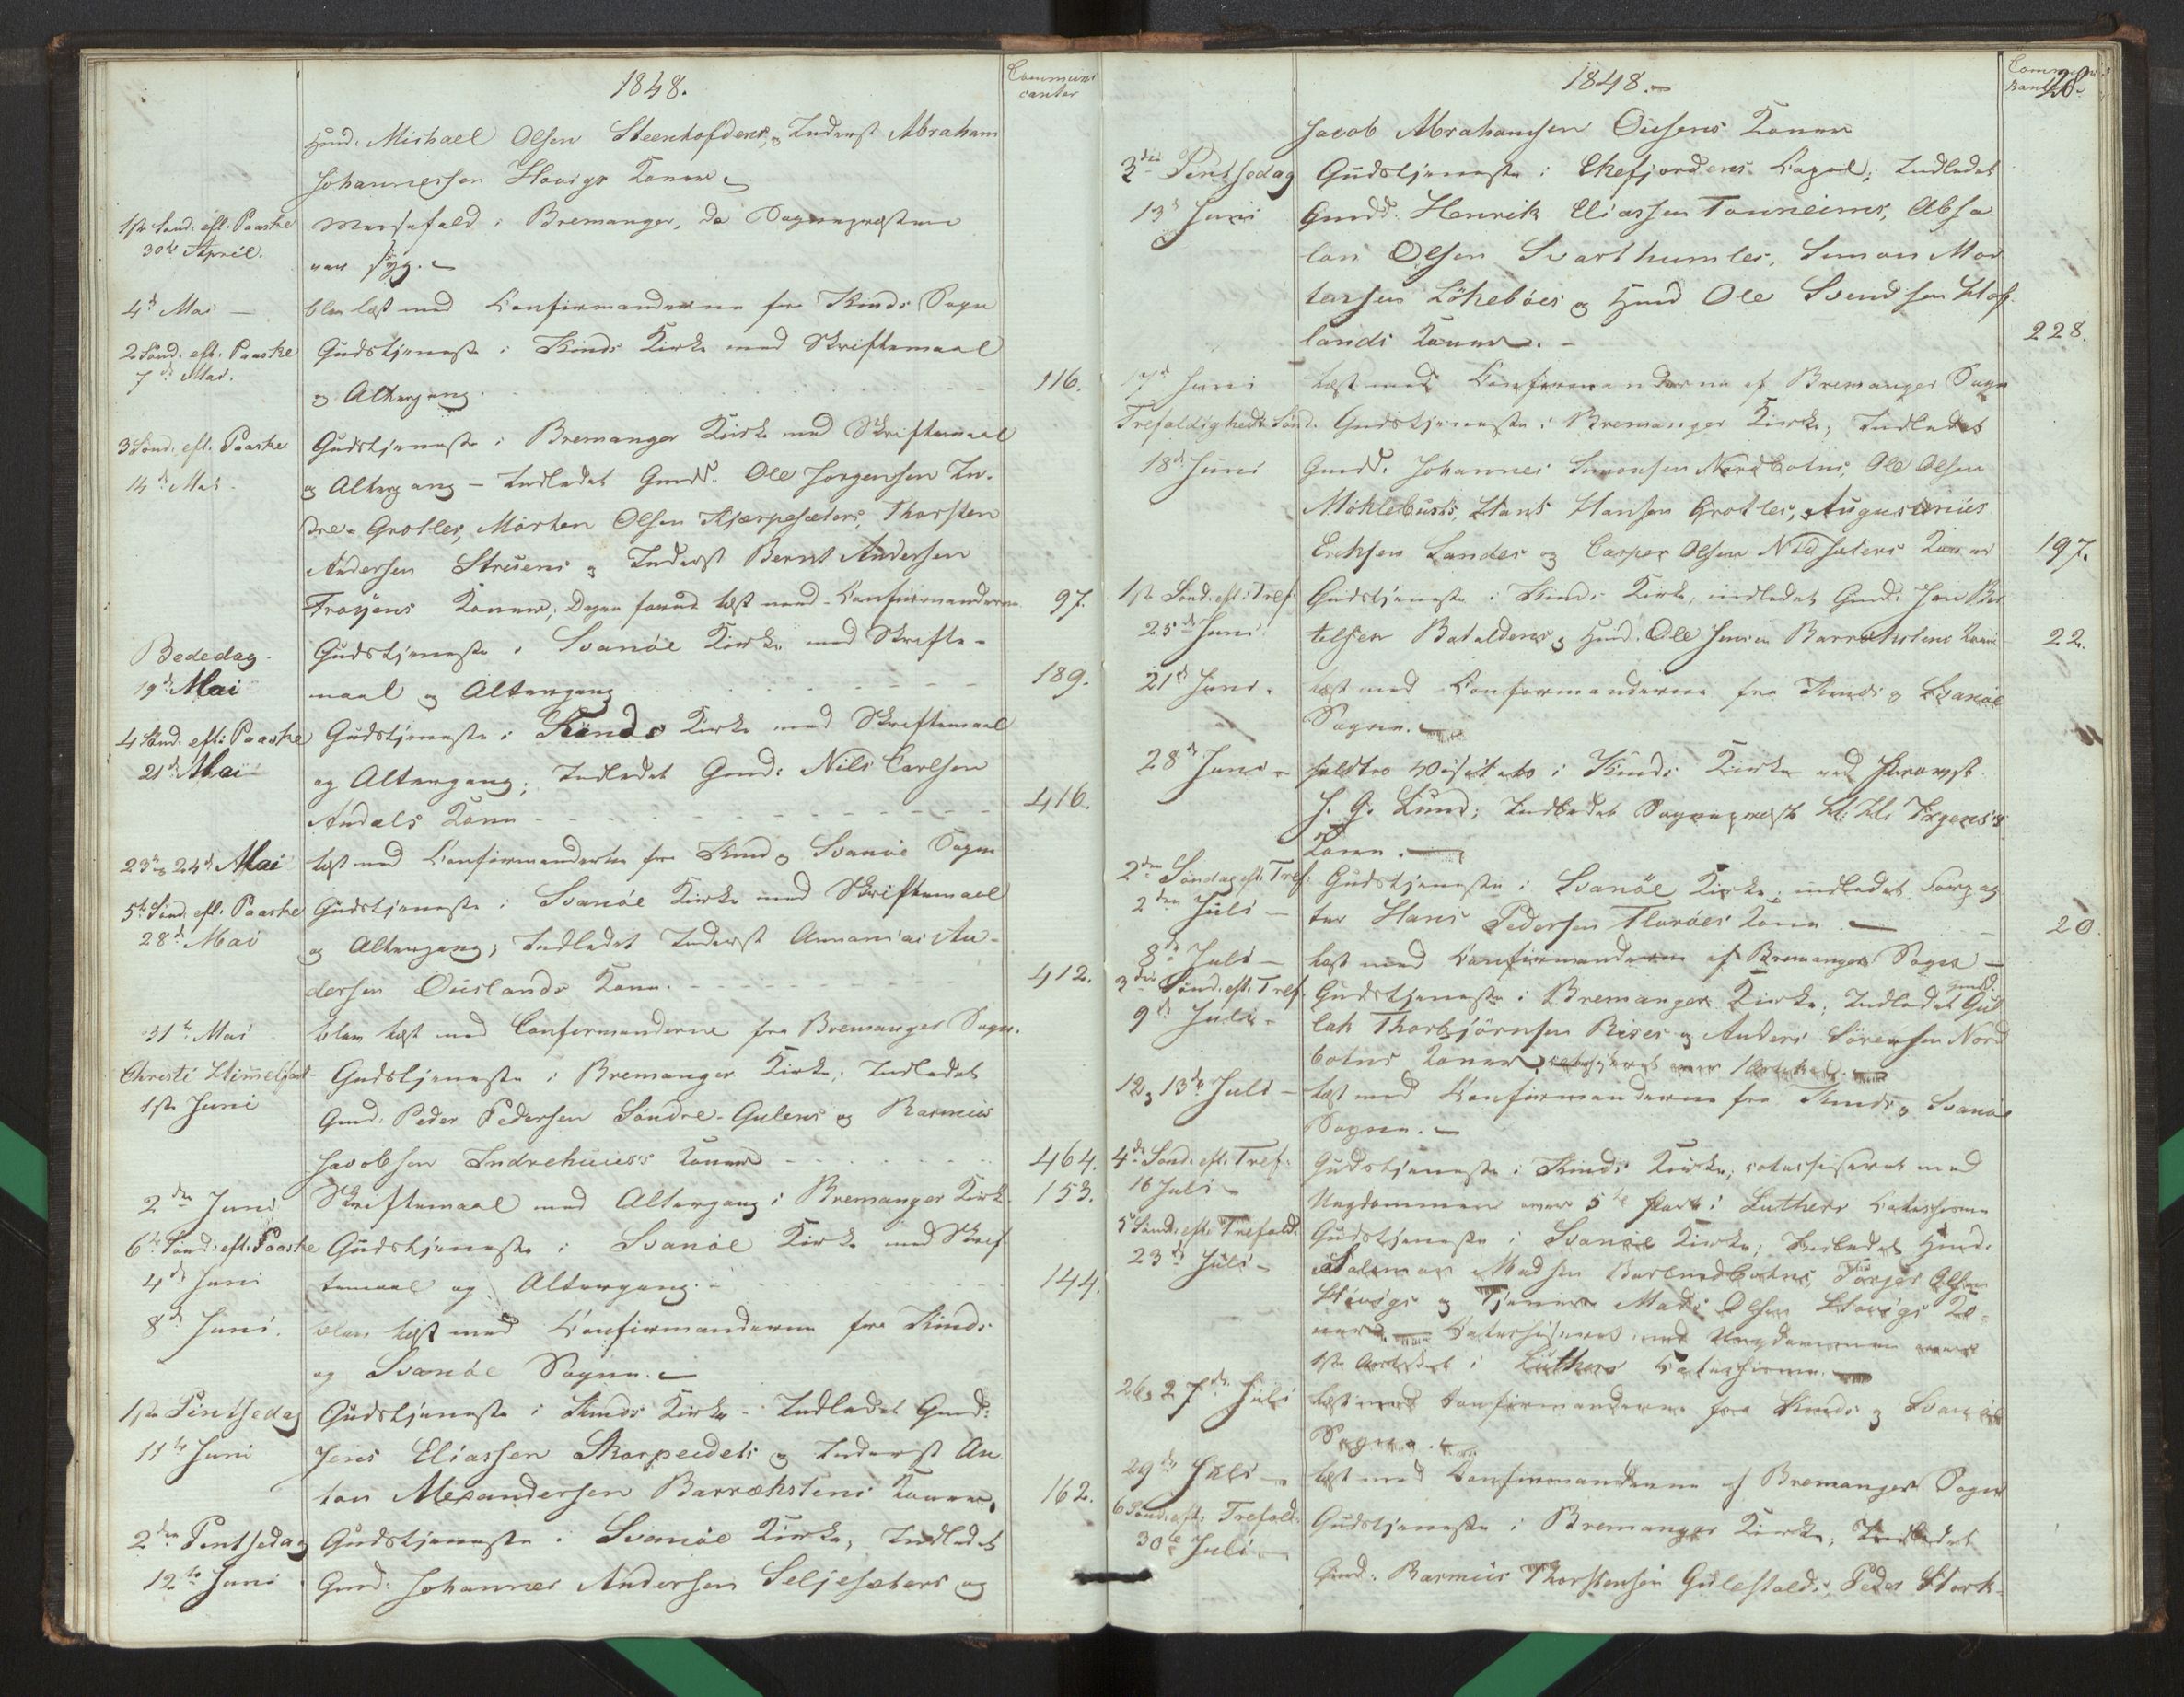 1848.
Communi
canter
Huusd. Michael Olsen Steenhofdens, og Inderst Abraham
Johannessen Hövigs Koner
1ste Sönd. eft. Paaske Messefald i Bremanger, da Sognepræsten
30te April. var syg.
4de Mai blev læst med Confirmanderne fra Kinds Sogn
2 Sönd. eft. Paaske Gudstjeneste i Kinds Kirke med Skriftemaal
7de Mai. og Altergang 116.
3 Sönd. eft. Paaske Gudstjeneste i Bremanger Kirke med Skriftemaal
14de Mai og Altergang – Indledet Gmd. Ole Jörgensen In-
dre-Grotles, Morten Olsen Kjærpesæters, Thorsten
Andersen Struens og Inderst Bernt Andersen
Fröyens Koner, Dagen forud læst med Confirmanderne 97.
Bededag Gudstjeneste i Svanöe Kirke med Skrifte-
19de Mai maal og Altergang 189.
4 Sönd. eft. Paaske Gudstjeneste i Kinds Kirke med Skriftemaal
21de Mai og Altergang; Indledet Gmd: Nils Carlsen
Andals Kone 416.
23de og 24de Mai læst med Confirmanderne fra Kind og Svanöe Sogne
5te Sönd. eft. Paaske Gudstjeneste i Svanöe Kirke med Skriftemaal
28de Mai og Altergang; Indledet Inderst Annanias An-
dersen Ouslands Kone. 412.
31te Mai blev læst med Confirmanderne fra Bremanger Sogn.
Christi Himmelfart Gudstjeneste i Bremanger Kirke; Indledet
1ste Juni Gmd. Peder Pedersen Söndre-Gulens og Rasmus
Jacobsen Indrehuus's Koner 464.
2den Juni Skriftemaal med Altergang i Bremanger Kirke 153.
6te Sönd: eft. Paaske Gudstjeneste i Svanöe Kirke med Skrif
4de Juni temaal og Altergang. 144.
8de Juni. blev læst med Confirmanderne fra Kinds
og Svanöe Sogne.
1ste Pintsedag Gudstjeneste i Kinds Kirke – Indledet Gmd:
11te Juni Jens Eliassen Skorpeidets og Inderst An
ton Alexandersen Barrækstens Koner. 162.
2den Pintsedag Gudstjeneste i Svanöe Kirke, Indledet
12te Juni Gmd: Johannes Andersen Seljesæters og
1848.
28
Jacob Abrahamsen Ousens Koner
3die Pintsedag Gudstjeneste i Ekefjordens Capel; Indledet
13de Juni Gmdd. Henrik Eliassen Tonneims, Absa
lon Olsen Svarthumles, Simon Mor
tensen Lökeböes og Huusd Ole Svendsen Hof
lands Koner. 228.
17de Juni læst med Confirmanderne af Bremanger Sogn
Trefoldigheds Sönd. Gudstjeneste i Bremanger Kirke; Indledet
18de Juni Gmdd. Johannes Simonsen Nordbotns, Ole Olsen
Möklebusts, Hans Hansen Grotles, Augustinus
Eriksen Landes og Casper Olsen Nedsæters Koner 197.
1ste Sönd. eft. Tref. Gudstjeneste i Kinds Kirke, indledet Gmd: Jon Ber
25de Juni telsen Bataldens og Huusd. Ole Jensen Barrækstens Koner 22.
21de Juni. læst med Confirmanderne fra Kinds og Svanöe
Sogne.
28de Juni holdtes Visitats i Kinds Kirke ved Provst
J. G. Lund; Indledet Sognepræst Irgens's
Kone.
2den Söndag eft. Tref: Gudstjeneste i Svanöe Kirke; indledet Forpag
2den Juli ter Hans Pedersen Floröes Kone 20.
8de Juli læst med Confirmanderne af Bremanger Sogn
3die Sönd. eft. Tref. Gudstjeneste i Bremanger Kirke; Indledet Gmdd. Gul
9de Juli lak Thorbjörnsen Rises og Anders Sörensen Nord
botns Koner, catechiseret over 1 Artikel.
12 og 13de Juli læst med Confirmanderne fra Kinds og Svanöe
Sogne.
4de Sönd. eft. Tref: Gudstjeneste i Kinds Kirke; catechiseret med
16 Juli Ungdommen over 5te Part i Luthers Catechisme
5 Sönd. eft. Trefold. Gudstjeneste i Svanöe Kirke; Indledet Huusd.
23de Juli Salomon Madsen Barlindbotns, Torger Olsen
Hövigs og Tjener Mads Olsen Hövigs Ko-
ner. – Catechiseret med Ungdommen over
1ste Artikel i Luthers Catechisme.
26 og 27de Juli læst med Confirmanderne fra Kinds og Svanöe
Sogne.
29de Juli læst med Confirmanderne af Bremanger Sogn
6 Sönd. eft. Trefold. Gudstjeneste i Bremanger Kirke, Indledet
30te Juli Gmd: Rasmus Thorstensen Gulestads, Peder Stork-